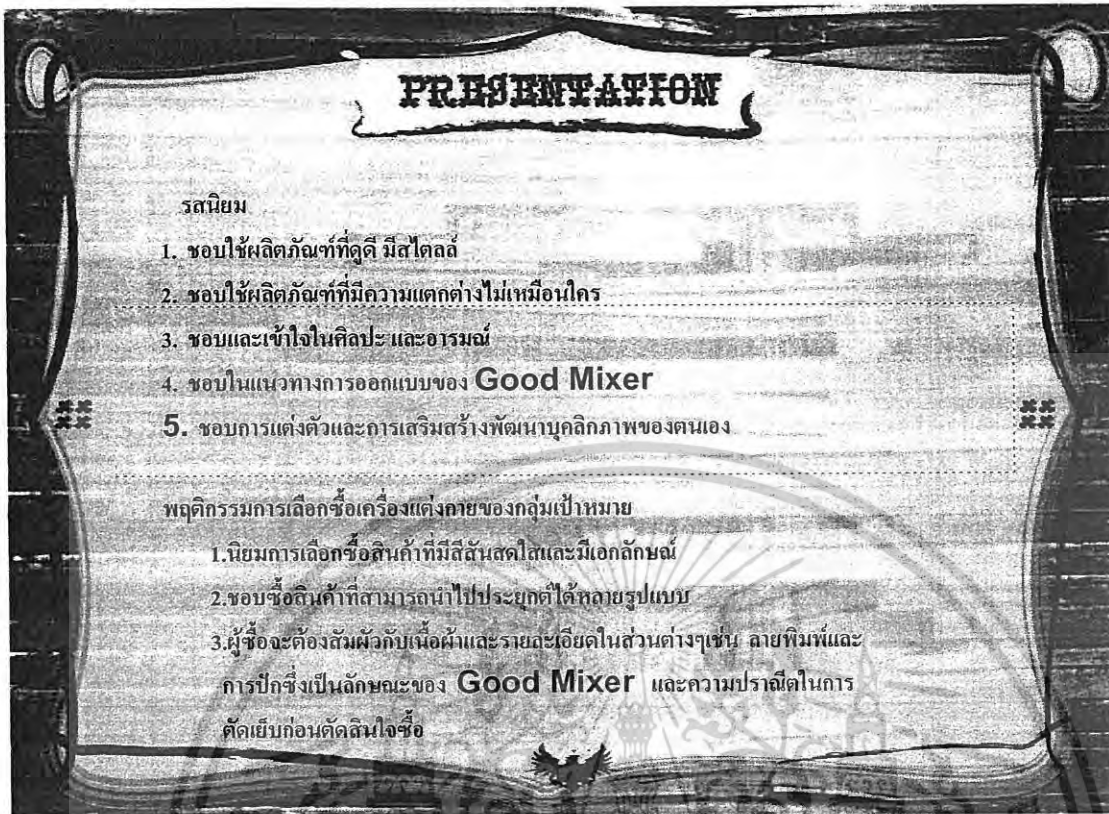 PRESENTATION
รสนิยม
1. ชอบใช้ผลิตภัณฑ์ที่ดูดี มีสไตลล์
2. ชอบใช้ผลิตภัณฑ์ที่มีความแตกต่างไม่เหมือนใคร
3. ชอบและเข้าใจในศิลปะ และอารมณ์
4. ชอบในแนวทางการออกแบบของ Good Mixer
5. ชอบการแต่งตัวและการเสริมสร้างพัฒนาบุคลิกภาพของตนเอง
พฤติกรรมการเลือกซื้อเครื่องแต่งกายของกลุ่มเป้าหมาย
1.นิยมการเลือกซื้อสินค้าที่มีสีสันสดใสและมีเอกลักษณ์
2.ชอบซื้อสินค้าที่สามารถนำไปประยุกต์ได้หลายรูปแบบ
3.ผู้ซื้อจะต้องสัมผัวกับเนื้อผ้าและรายละเอียดในส่วนต่างๆเช่น ลายพิมพ์และ
การปักซึ่งเป็นลักษณะของ Good Mixer และความปราณีตในการ
ตัดเย็บก่อนตัดสินใจซื้อ